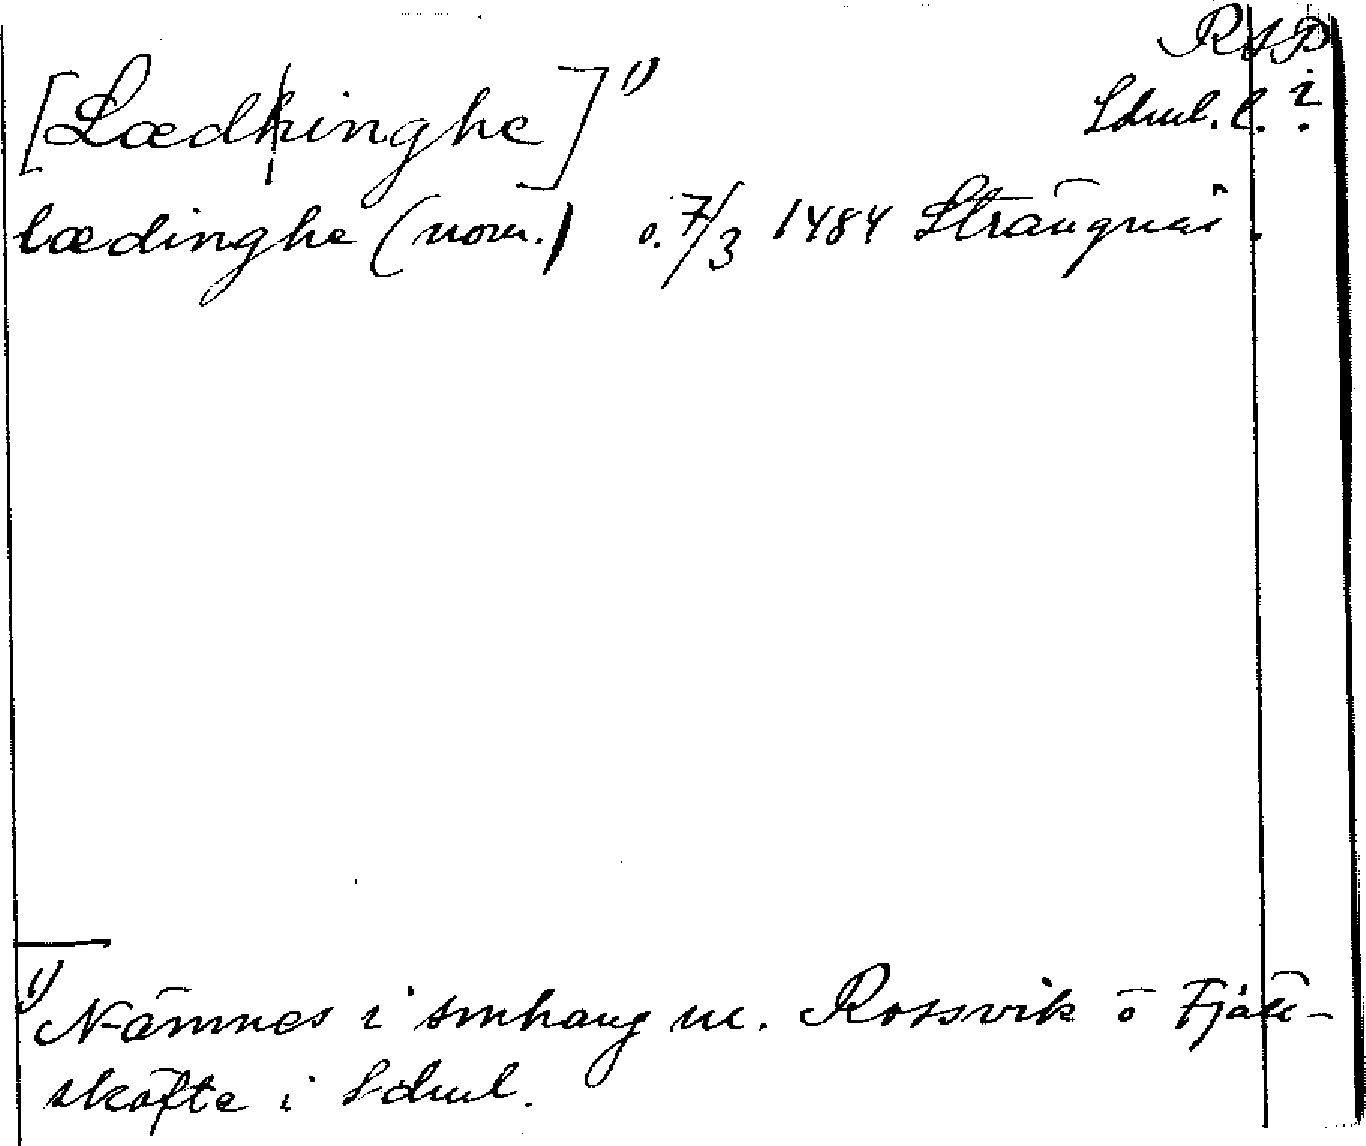 RAP
[Læd|hinghe] 1)
Sdml. l. ?
lædinghe (nom.) o. 7/3 1484 Strängnäs.
1) Nämnes i smhang m. Rossvik o Fjäll-
skäfte i Sdml.